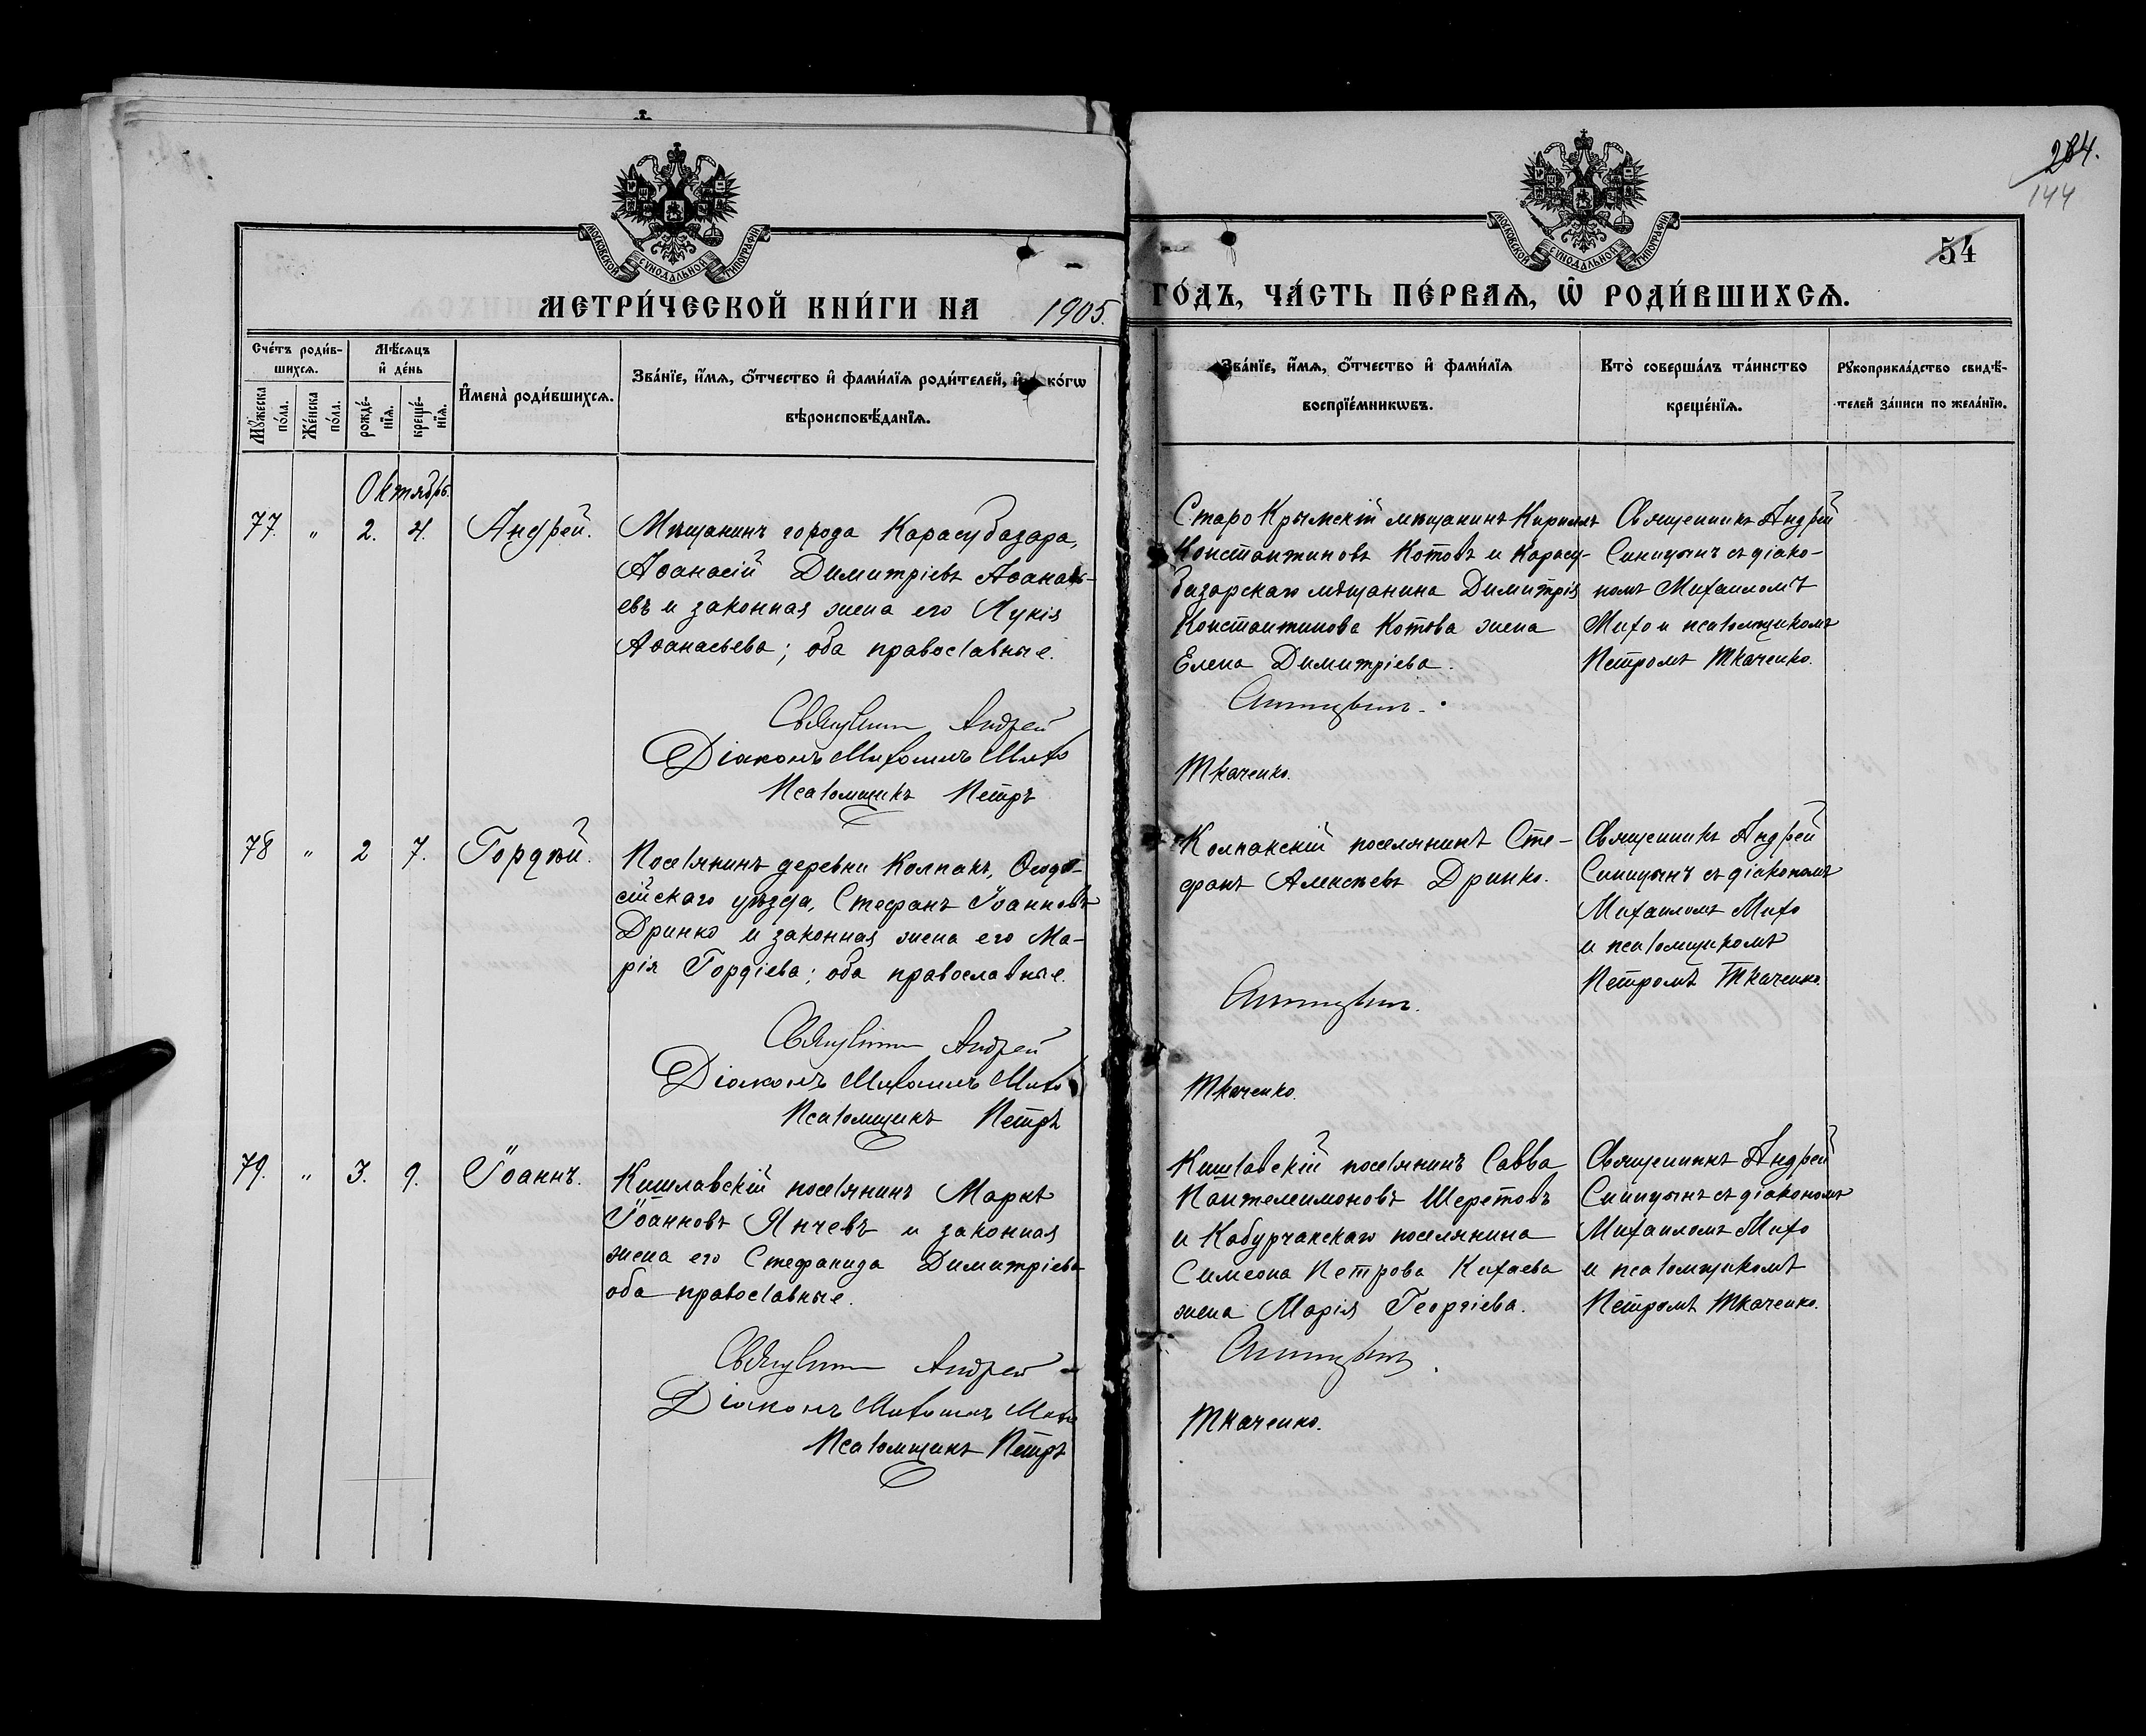 284.
144
54
МОСКОВСКОЙ СѴНОДАЛЬНОЙ ТИПОГРАФІИ
МОСКОВСКОЙ СѴНОДАЛЬНОЙ ТИПОГРАФІИ
МЕТРИ́ЧЕСКОЙ КНИ́ГИ НА 1905. ГО́ДЪ, ЧА́СТЬ ПЕ́РВАѦ, Ѡ РОДИ́ВШИХСѦ.
Сче́тъ роди́в-
шихсѧ.
Мꙋ́жеска по́ла.
Же́нска по́ла.
Мѣ́сѧцъ
и҆ де́нь
рожде́-
нїѧ.
креще́-
нїѧ.
И҆мена̀ роди́вшихсѧ.
Зва́нїе, и҆́мѧ, ѻ҆́тчество и҆ фамилїѧ роди́телей, и҆ ко́гѡ
вѣроисповѣ́данїѧ.
Зва́нїе, и҆́мѧ, ѻ҆́тчество и҆ фами́лїѧ
воспрїе́мникѡвъ.
Кто̀ соверша́лъ та́инство
креще́нїѧ.
Рꙋкоприкла́дство свидѣ́-
телей за́писи по жела́нїю.
Октябрь.
77. " 2. 4. Андрей.
Мѣщанинъ города Карасубазара,
Аѳанасій Димитріевъ Аѳанась-
евъ и законная жена его Лукія
Аѳанасьева; оба православные.
Священникъ Андрей
Діаконъ Михаилъ Михо
Псаломщикъ Петръ
Старо Крымскій мѣщанинъ Кириллъ
Константиновъ Котовъ и Карасу-
базарскаго мѣщанина Димитрія
Константинова Котова жена
Елена Димитріева.
Синицынъ.
Ткаченко.
Священникъ Андрей
Синицынъ съ діако-
номъ Михаиломъ
Михо и псаломщикомъ
Петромъ Ткаченко.
78 " 2 7. Гордѣй.
Поселянинъ деревни Колпакъ, Ѳеодо-
сійскаго уѣзда, Стефанъ Іоанновъ
Дринко и законная жена его Ма-
рія Гордіева; оба православные.
Священникъ Андрей
Діаконъ Михаилъ Михо
Псаломщикъ Петръ
Колпакскій поселянинъ Сте-
фанъ Алексѣевъ Дринко.
Синицынъ.
Ткаченко.
Священникъ Андрей
Синицынъ съ діакономъ
Михаиломъ Михо
и псаломщикомъ
Петромъ Ткаченко.
79. " 3. 9. Іоаннъ.
Кишлавскій поселянинъ Маркъ
Іоанновъ Янчевъ и законная
жена его Стефанида Димитріева
оба православные.
Священникъ Андрей
Діаконъ Михаилъ Михо
Псаломщикъ Петръ
Кишлавскій поселянинъ Савва
Пантелеимоновъ Шеретовъ
и Кабурчакскаго поселянина
Симеона Петрова Кихаева
жена Марія Георгіева.
Синицынъ.
Ткаченко.
Священникъ Андрей
Синицынъ съ діакономъ
Михаиломъ Михо
и псаломщикомъ
Петромъ Ткаченко.